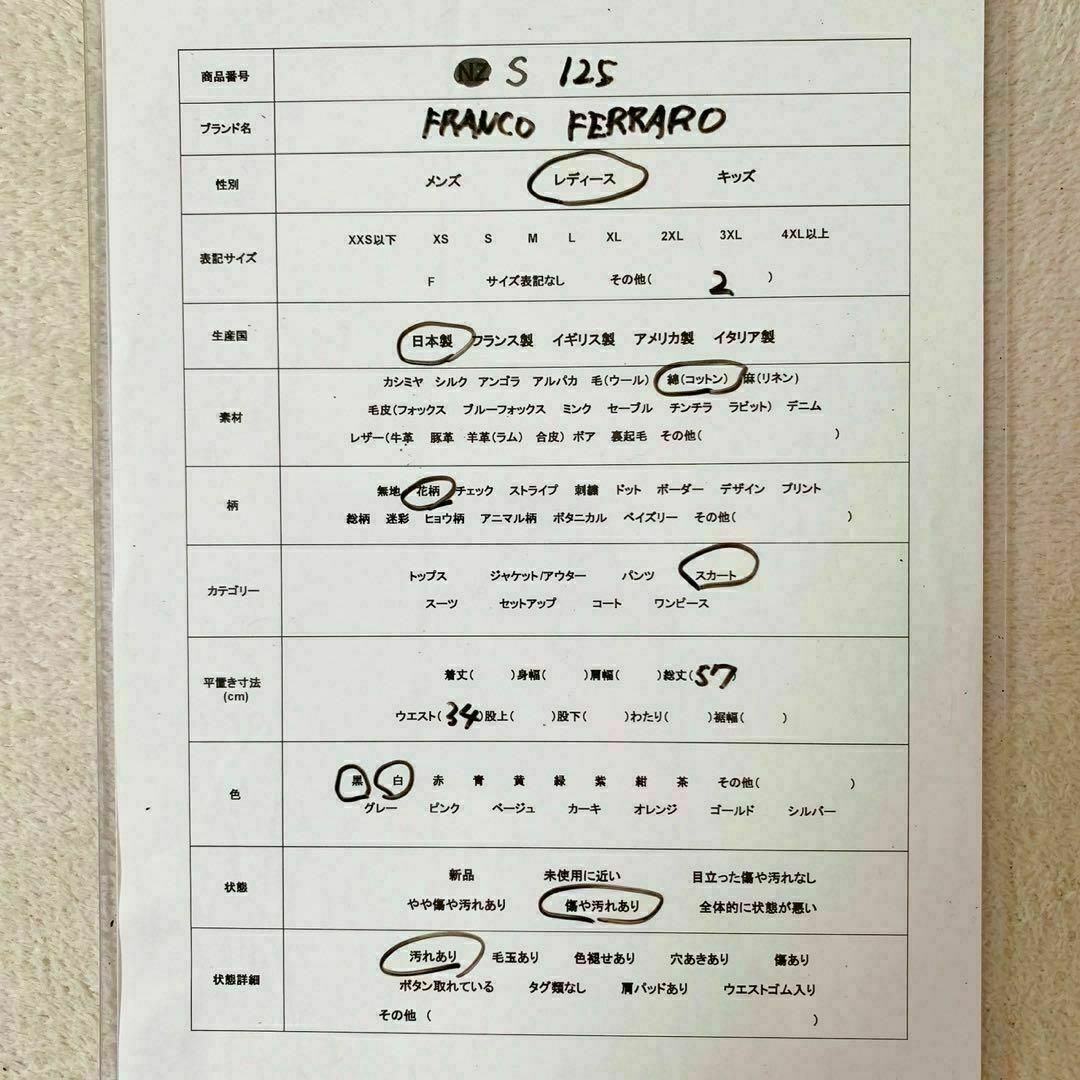 商品番号 NZ S 125
ブランド名 FRANCO FERRARO
性別 メンズ レディース キッズ
表記サイズ
XXS以下 XS S M L XL 2XL 3XL 4XL以上
F サイズ表記なし その他( 2 )
生産国 日本製 フランス製 イギリス製 アメリカ製 イタリア製
素材
カシミヤ シルク アンゴラ アルパカ 毛(ウール) 綿(コットン) 麻(リネン)
毛皮(フォックス ブルーフォックス ミンク セーブル チンチラ ラビット) デニム
レザー(牛革 豚革 羊革(ラム) 合皮) ボア 裏起毛 その他( )
柄
無地 花柄 チェック ストライプ 刺繍 ドット ボーダー デザイン プリント
総柄 迷彩 ヒョウ柄 アニマル柄 ボタニカル ペイズリー その他( )
カテゴリー
トップス ジャケット/アウター パンツ スカート
スーツ セットアップ コート ワンピース
平置き寸法
(cm)
着丈( )身幅( )肩幅( )総丈(57)
ウエスト(34)股上( )股下( )わたり( )裾幅( )
色
黒 白 赤 青 黄 緑 紫 紺 茶 その他( )
グレー ピンク ベージュ カーキ オレンジ ゴールド シルバー
状態
新品 未使用に近い 目立った傷や汚れなし
やや傷や汚れあり 傷や汚れあり 全体的に状態が悪い
状態詳細
汚れあり 毛玉あり 色褪せあり 穴あきあり 傷あり
ボタン取れている タグ類なし 肩パッドあり ウエストゴム入り
その他 ( )